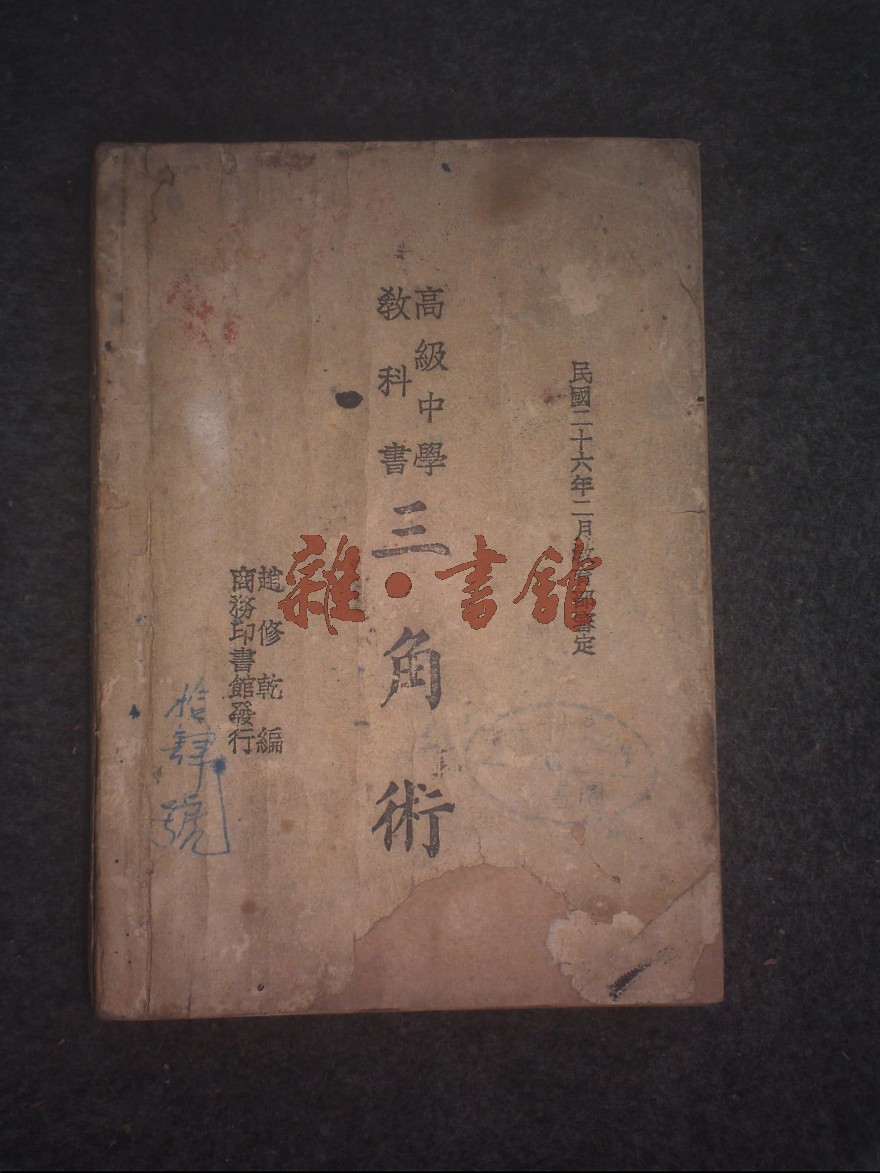 民國二十六年二月教育部審定
高級中學
教科書
三角術
趙修乾編
商務印書館發行
拾肆號
雜·書館